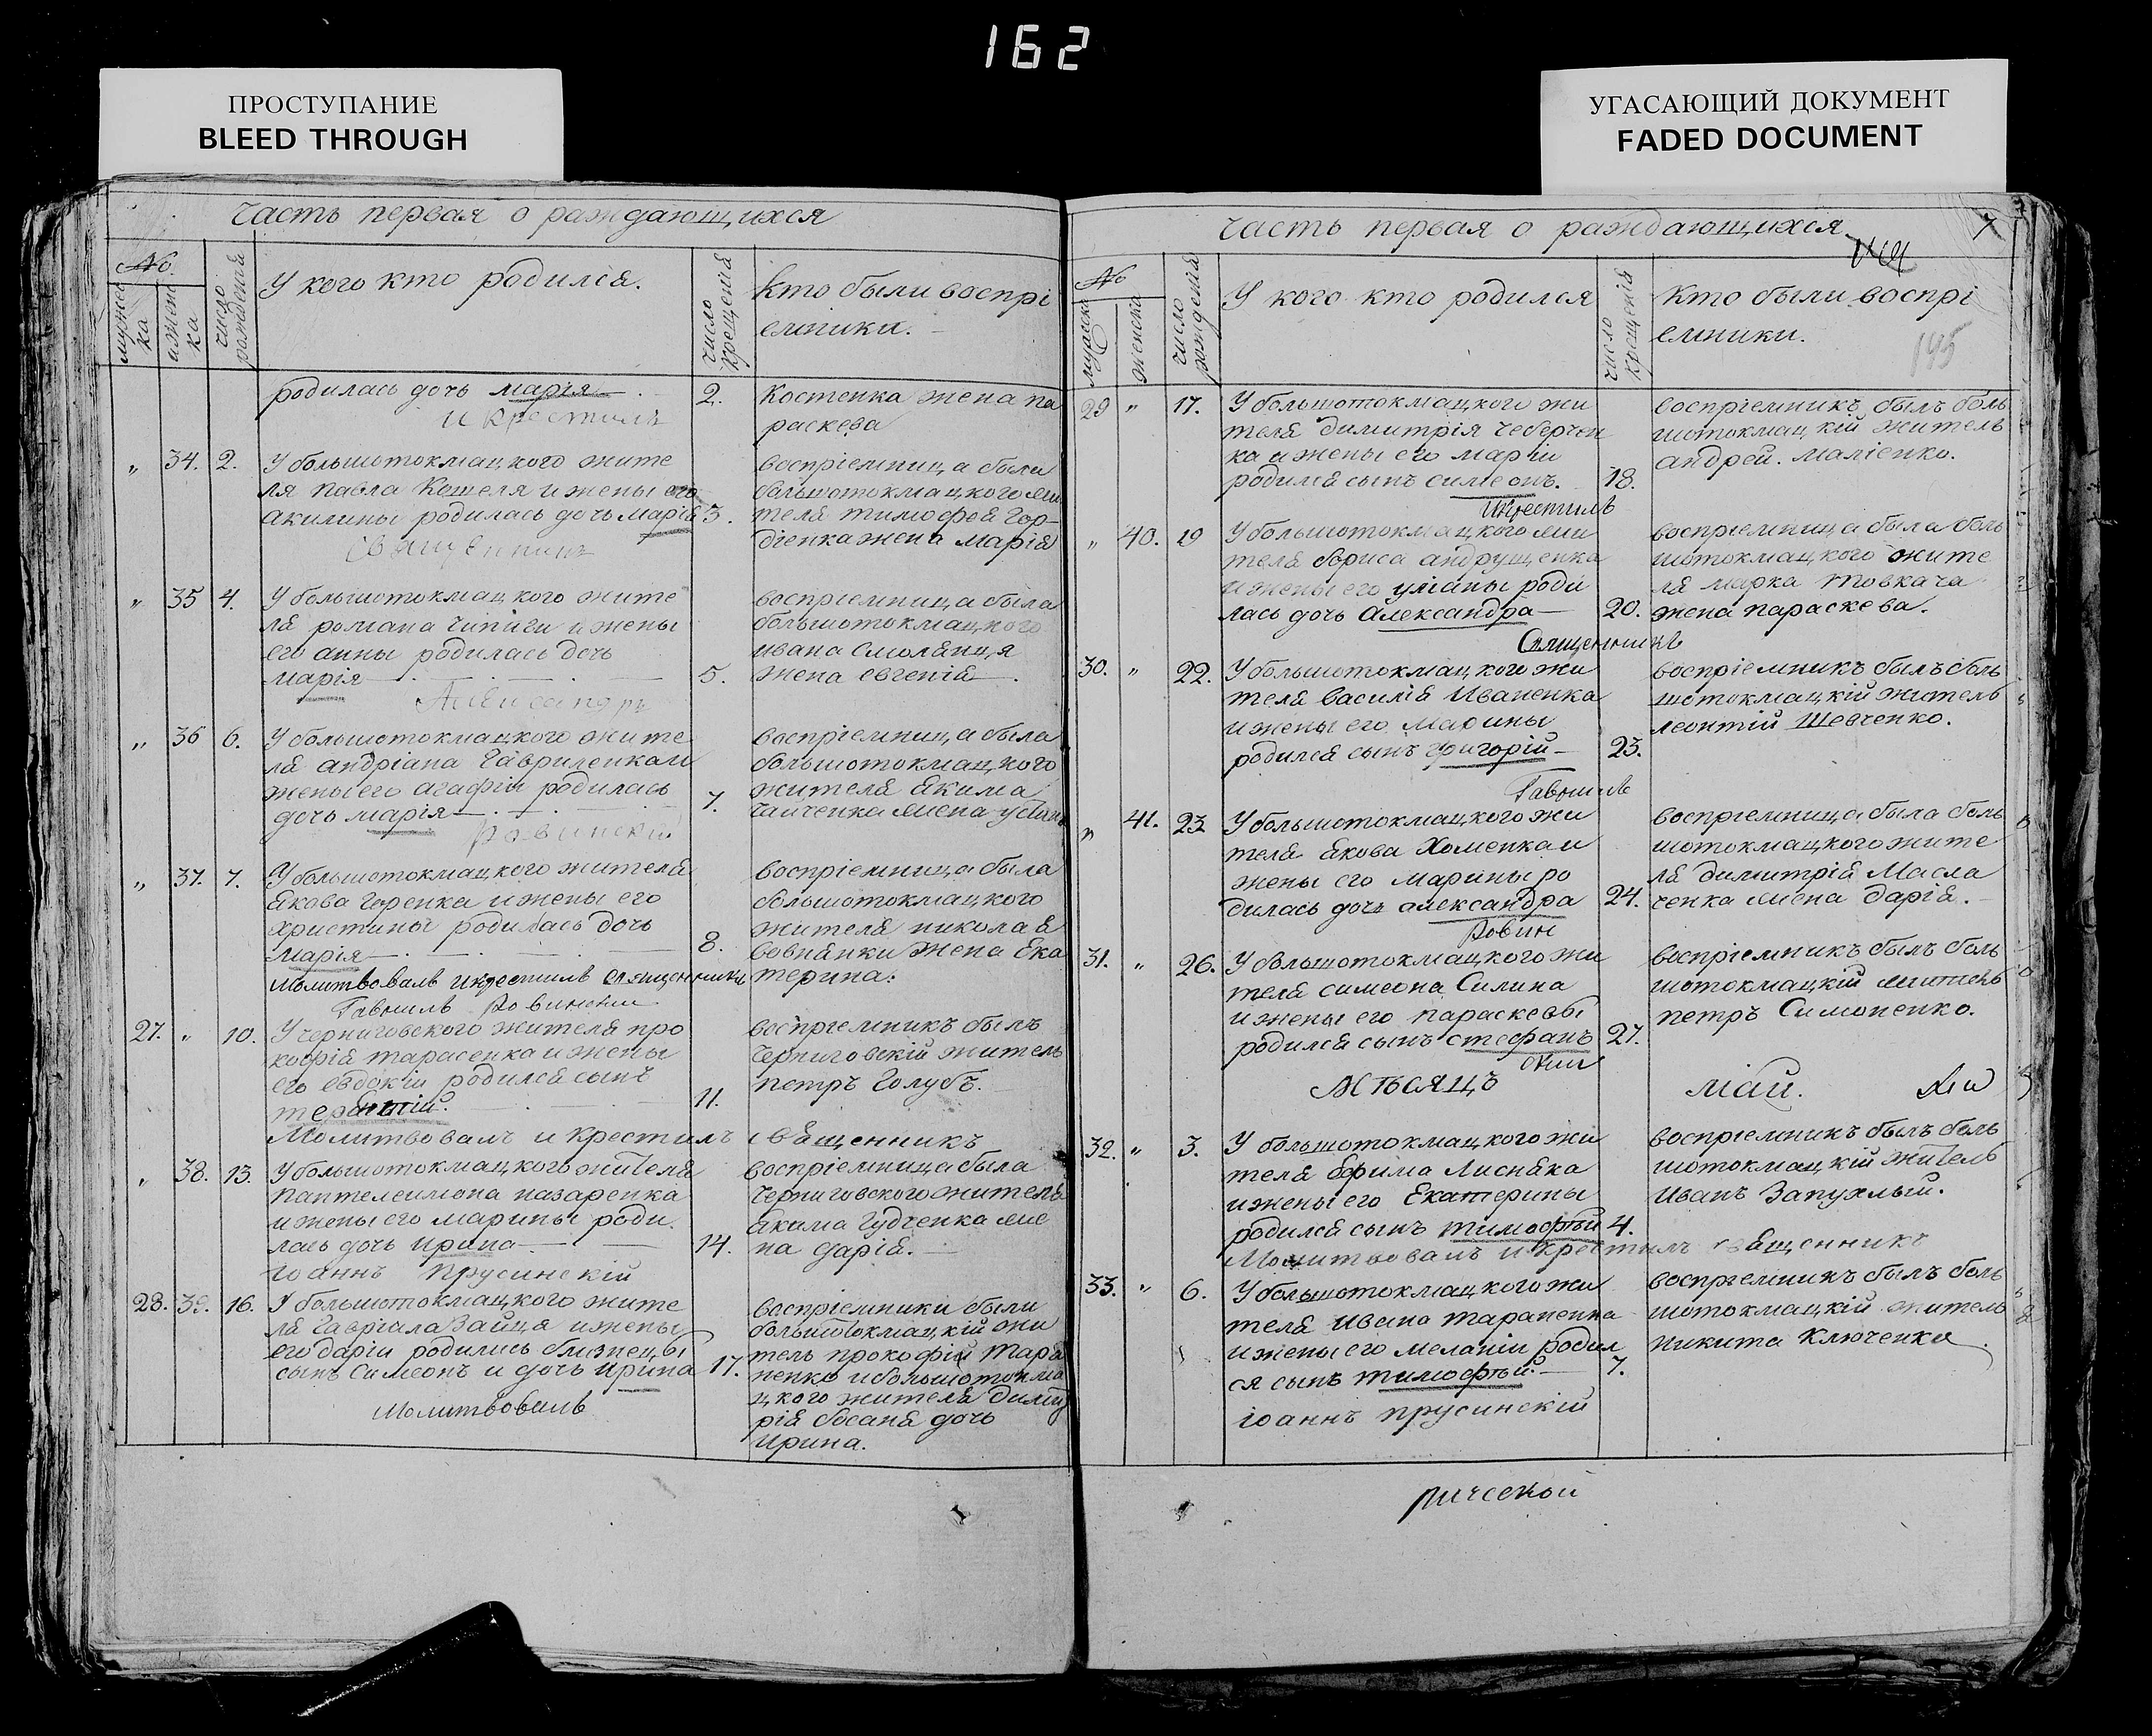 162
ПРОСТУПАНИЕ
BLEED THROUGH
УГАСАЮЩИЙ ДОКУМЕНТ
FADED DOCUMENT
Часть первая о раждающихся
№
мужес
ка
женс
ка
число
рождения
У кого кто родился.
число
крещенія
кто были воспрі
емники.
родилась дочь марія
2.
Костенка жена па
раскева
и крестилъ
„ 34. 2.
У большотокмацкого жите
ля павла Кошеля и жены его
акилины родилась дочь марія
3.
воспріемница были
большотокмацкого жи
теля тимофея Гор-
діенка жена марія
священникъ
„ 35 4.
У большотокмацкого жите
ля романа чипиги и жены
его анны родилась дочь
марія
5.
воспріемница была
большотокмацкого
ивана смолянця
жена евгенія
Александръ
„ 36 6.
У большотокмацкого жите
ля андріана гавриленка и
жены его агафіи родилась
дочь марія
7.
воспріемница была
большотокмацкого
жителя якима
чайченка жена
Ровинскій
„ 37. 7.
У большотокмацкого жителя
якова горенка и жены его
христины родилась дочь
марія
8.
воспріемница была
большотокмацкого
жителя николая
вовнянки жена ека
терина.
молитвовалъ и крестилъ священникъ
Гавриилъ Ровинскій
27. „ 10.
У черниговского жителя про
кофія тарасенка и жены
его евдокіи родился сынъ
11.
воспріемникъ былъ
черниговскій житель
петръ Голубъ.
Молитвовалъ и крестилъ священникъ
„ 38. 13.
У большотокмацкого жителя
пантелеимона назаренка
и жены его марины роди
лась дочь ирина
14.
воспріемница была
черниговского жителя
якима Гудченка же
на дарія.
іоаннъ прусинскій
28. 39. 16.
У большотокмацкого жите
ля гавріила Зайця и жены
его даріи родились близнецы
сынъ симеонъ и дочь ирина
17.
воспріемники были
большотокмацкій жи
тель прокофій тара
ненко и большотокма
цкого жителя димит
рія босаня дочь
ирина.
Молитвовалъ
часть первая о раждающихся
7
№
мужеска
женска
число
рожденія
У кого кто родился
число
крещенія
Кто были воспрі
емники.
195
29 „ 17.
У большотокмацкого жи
теля димитрія чеберчен
ка и жены его маріи
родился сынъ симеонъ.
18.
воспріемникъ былъ боль
шотокмацкій житель
андрей маліенко.
и крестилъ
„ 40. 19
У большотокмацкого жи
теля бориса андрущенка
и жены его уліаны роди
лась дочь александра
20.
воспріемница была боль
шотокмацкого жите
ля марка товкача
жена параскева.
Священникъ
30. „ 22.
У большотокмацкого жи
теля василія иваненка
и жены его марины
родился сынъ григорій
23.
воспріемникъ былъ боль
шотокмацкій житель
леонтій шевченко.
Гавриилъ
„ 41. 23
У большотокмацкого жи
теля якова хоменка и
жены его марины ро
дилась дочь александра
24.
воспріемница была боль
шотокмацкого жите
ля димитрія Масла
ченка жена дарія.
Ровин
31. „ 26.
У большотокмацкого жи
теля симеона силина
и жены его параскевы
родился сынъ стефанъ
27.
воспріемникъ былъ боль
шотокмацкій житель
петръ Симоненко.
скій
мѣсяцъ
май.
32. „ 3.
У большотокмацкого жи
теля ефима лисняка
и жены его екатерины
родился сынъ тимофѣй
4.
воспріемникъ былъ боль
шотокмацкій житель
иванъ запухлый.
Молитвовалъ и крестилъ священникъ
33. „ 6.
У большотокмацкого жи
теля ивана тараненка
и жены его меланіи родил
ся сынъ тимофѣй.
7.
воспріемникъ былъ боль
шотокмацкій житель
никита ключенка
іоаннъ прусинскій
рической